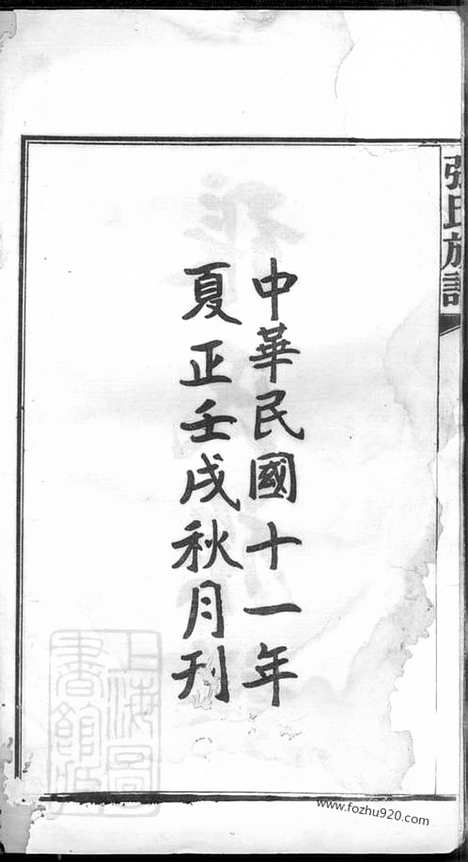 張氏族譜
中華民國十一年
夏正壬戌秋月刊
上海圖
書館藏
www.fozhu920.com